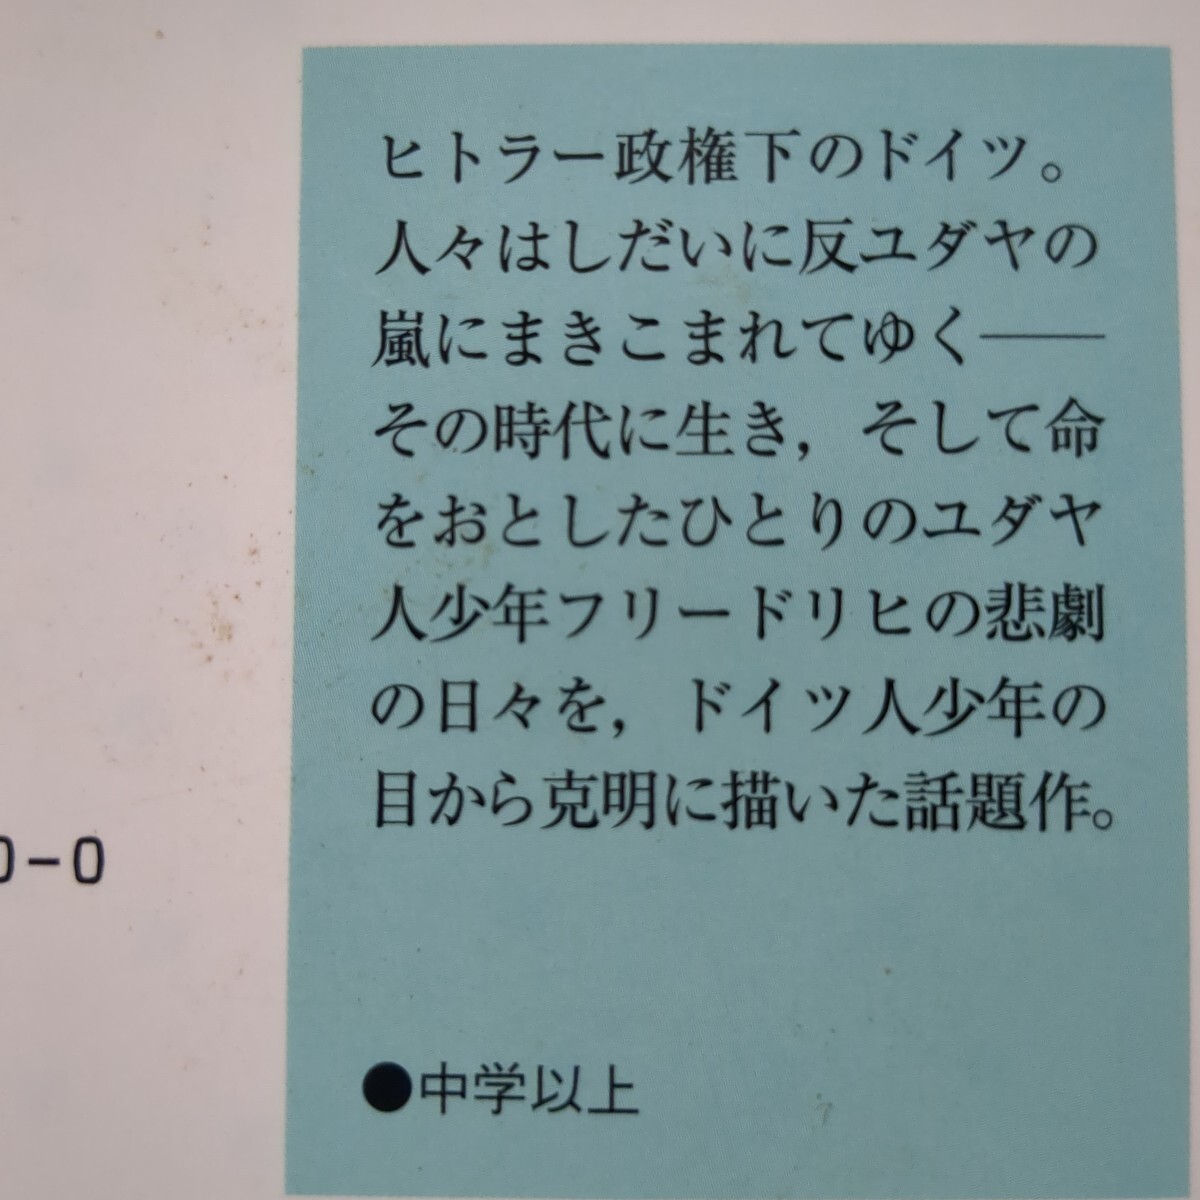 ヒトラー政権下のドイツ。
人々はしだいに反ユダヤの
嵐にまきこまれてゆく――
その時代に生き，そして命
をおとしたひとりのユダヤ
人少年フリードリヒの悲劇
の日々を，ドイツ人少年の
目から克明に描いた話題作。
0-0
●中学以上